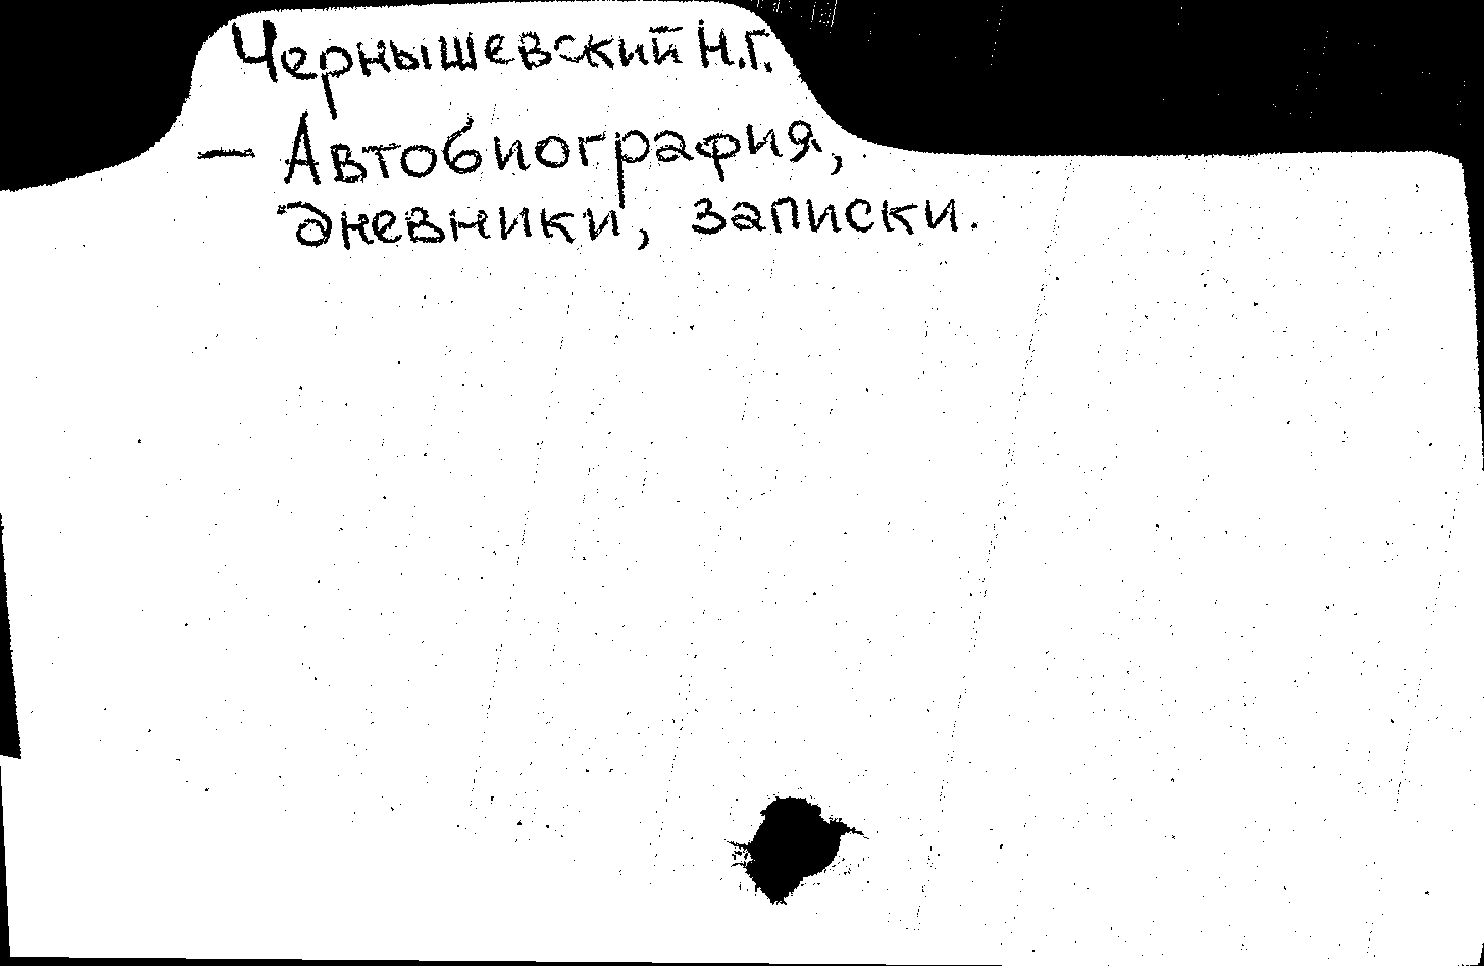 Чернышевский Н.Г.
— Автобиография,
дневники, записки.